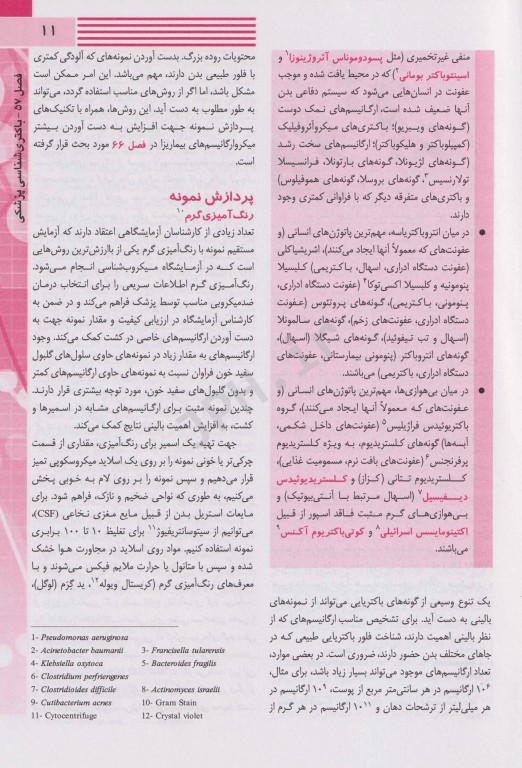 ۱۱
فصل ۵۷ - باکتری‌شناسی پزشکی
منفی غیرتخمیری (مثل پسودوموناس آئروژینوزا¹ و
اسینتوباکتر بومانی²) که در محیط یافت شده و موجب
عفونت در انسان‌هایی می‌شود که سیستم دفاعی بدن
آنها ضعیف شده است، ارگانیسم‌های نمک دوست
(گونه‌های ویبریو)؛ باکتری‌های میکروآئروفیلیک
(کمپیلوباکتر و هلیکوباکتر)؛ ارگانیسم‌های سخت رشد
(گونه‌های لژیونلا، گونه‌های بارتونلا، فرانسیسلا
تولارنسیس³، گونه‌های بروسلا، گونه‌های هموفیلوس)
و باکتری‌های متفرقه دیگر که با فراوانی کمتری وجود
دارند.
• در میان انتروباکتریاسه، مهم‌ترین پاتوژن‌های انسانی (و
عفونت‌های که معمولاً آنها ایجاد می‌کنند)، اشریشیاکلی
(عفونت دستگاه ادراری، اسهال، باکتریمی) کلبسیلا
پنومونیه و کلبسیلا اکسی‌توکا⁴ (عفونت دستگاه ادراری،
پنومونی، باکتریمی)، گونه‌های پروتئوس (عفونت
دستگاه ادراری، عفونت‌های زخم)، گونه‌های سالمونلا
(اسهال و تب تیفوئید)، گونه‌های شیگلا (اسهال)،
گونه‌های انتروباکتر (پنومونی بیمارستانی، عفونت‌های
دستگاه ادراری، باکتریمی) می‌باشند.
• در میان بی‌هوازی‌ها، مهم‌ترین پاتوژن‌های انسانی (و
عفونت‌های که معمولاً آنها ایجاد می‌کنند)، گروه
باکتروئیدس فراژیلیس⁵ (عفونت‌های داخل شکمی،
آبسه‌ها) گونه‌های کلستریدیوم، به ویژه کلستریدیوم
پرفرجنس⁶ (عفونت‌های بافت نرم، مسمومیت غذایی)،
کلستریدیوم تتانی (کزاز) و کلستریدیوئیدس
دیفیسیل⁷ (اسهال مرتبط با آنتی‌بیوتیک) و
بی‌هوازی‌های گرم مثبت فاقد اسپور از قبیل
اکتینومایسس اسرائیلی⁸ و کوتی‌باکتریوم آکنس⁹
می‌باشند.
یک تنوع وسیعی از گونه‌های باکتریایی می‌تواند از نمونه‌های
بالینی به دست آید. برای تشخیص مناسب ارگانیسم‌های که از
نظر بالینی اهمیت دارند، شناخت فلور باکتریایی طبیعی که در
جاهای مختلف بدن حضور دارند، ضروری است. در بعضی موارد،
تعداد ارگانیسم‌های موجود می‌تواند بسیار زیاد باشد، برای مثال،
۱۰⁶ ارگانیسم در هر سانتی‌متر مربع از پوست، ۱۰⁹ ارگانیسم در
هر میلی‌لیتر از ترشحات دهان و ۱۰¹¹ ارگانیسم در هر گرم از
محتویات روده بزرگ. بدست آوردن نمونه‌های که آلودگی کمتری
با فلور طبیعی بدن دارند، مهم می‌باشد. این امر ممکن است
مشکل باشد، اما اگر از روش‌های مناسب استفاده گردد، می‌تواند
به طور مطلوب به دست آید. این روش‌ها، همراه با تکنیک‌های
پردازش نمونه جهت افزایش به دست آوردن بیشتر
میکروارگانیسم‌های بیماریزا در فصل ۶۶ مورد بحث قرار گرفته
است.
پردازش نمونه
رنگ‌آمیزی گرم¹⁰
تعداد زیادی از کارشناسان آزمایشگاهی اعتقاد دارند که آزمایش
مستقیم نمونه با رنگ‌آمیزی گرم یکی از باارزش‌ترین روش‌هایی
است که در آزمایشگاه میکروب‌شناسی انجام می‌شود.
رنگ‌آمیزی گرم اطلاعات سریعی را برای انتخاب درمان
ضدمیکروبی مناسب توسط پزشک فراهم می‌کند و در ضمن به
کارشناس آزمایشگاه در ارزیابی کیفیت و مقدار نمونه جهت به
دست آوردن ارگانیسم‌های خاصی در کشت کمک می‌کند. وجود
ارگانیسم‌های به مقدار زیاد در نمونه‌های حاوی سلول‌های گلبول
سفید خون فراوان نسبت به نمونه‌های حاوی ارگانیسم‌های کمتر
و بدون گلبول‌های سفید خون، مورد توجه بیشتری قرار دارند.
چندین نمونه مثبت برای ارگانیسم‌های مشابه در اسمیرها و
کشت، به افزایش اهمیت بالینی نتایج کمک می‌کند.
جهت تهیه یک اسمیر برای رنگ‌آمیزی، مقداری از قسمت
چرکی‌تر یا خونی نمونه را بر روی یک اسلاید میکروسکوپی تمیز
قرار می‌دهیم و سپس نمونه را بر روی لام به خوبی پخش
می‌کنیم، به طوری که نواحی ضخیم و نازک، فراهم شود. برای
مایعات استریل بدن از قبیل مایع مغزی نخاعی (CSF)،
می‌توانیم از سیتوسانتریفیوژ¹¹ برای تغلیظ ۱۰ تا ۱۰۰ برابری
نمونه استفاده کنیم. مواد روی اسلاید در مجاورت هوا خشک
شده و سپس با متانول یا حرارت ملایم فیکس می‌شوند و با
معرف‌های رنگ‌آمیزی گرم (کریستال ویوله¹²، ید گرَم (لوگل)،
1- Pseudomonas aeruginosa
2- Acinetobacter baumanii 3- Francisella tularensis
4- Klebsiella oxytoca 5- Bacteroides fragilis
6- Clostridium perfrierogenes
7- Clostridioides difficile 8- Actinomyces israelii
9- Cutibacterium acnes 10- Gram Stain
11- Cytocentrifuge 12- Crystal violet